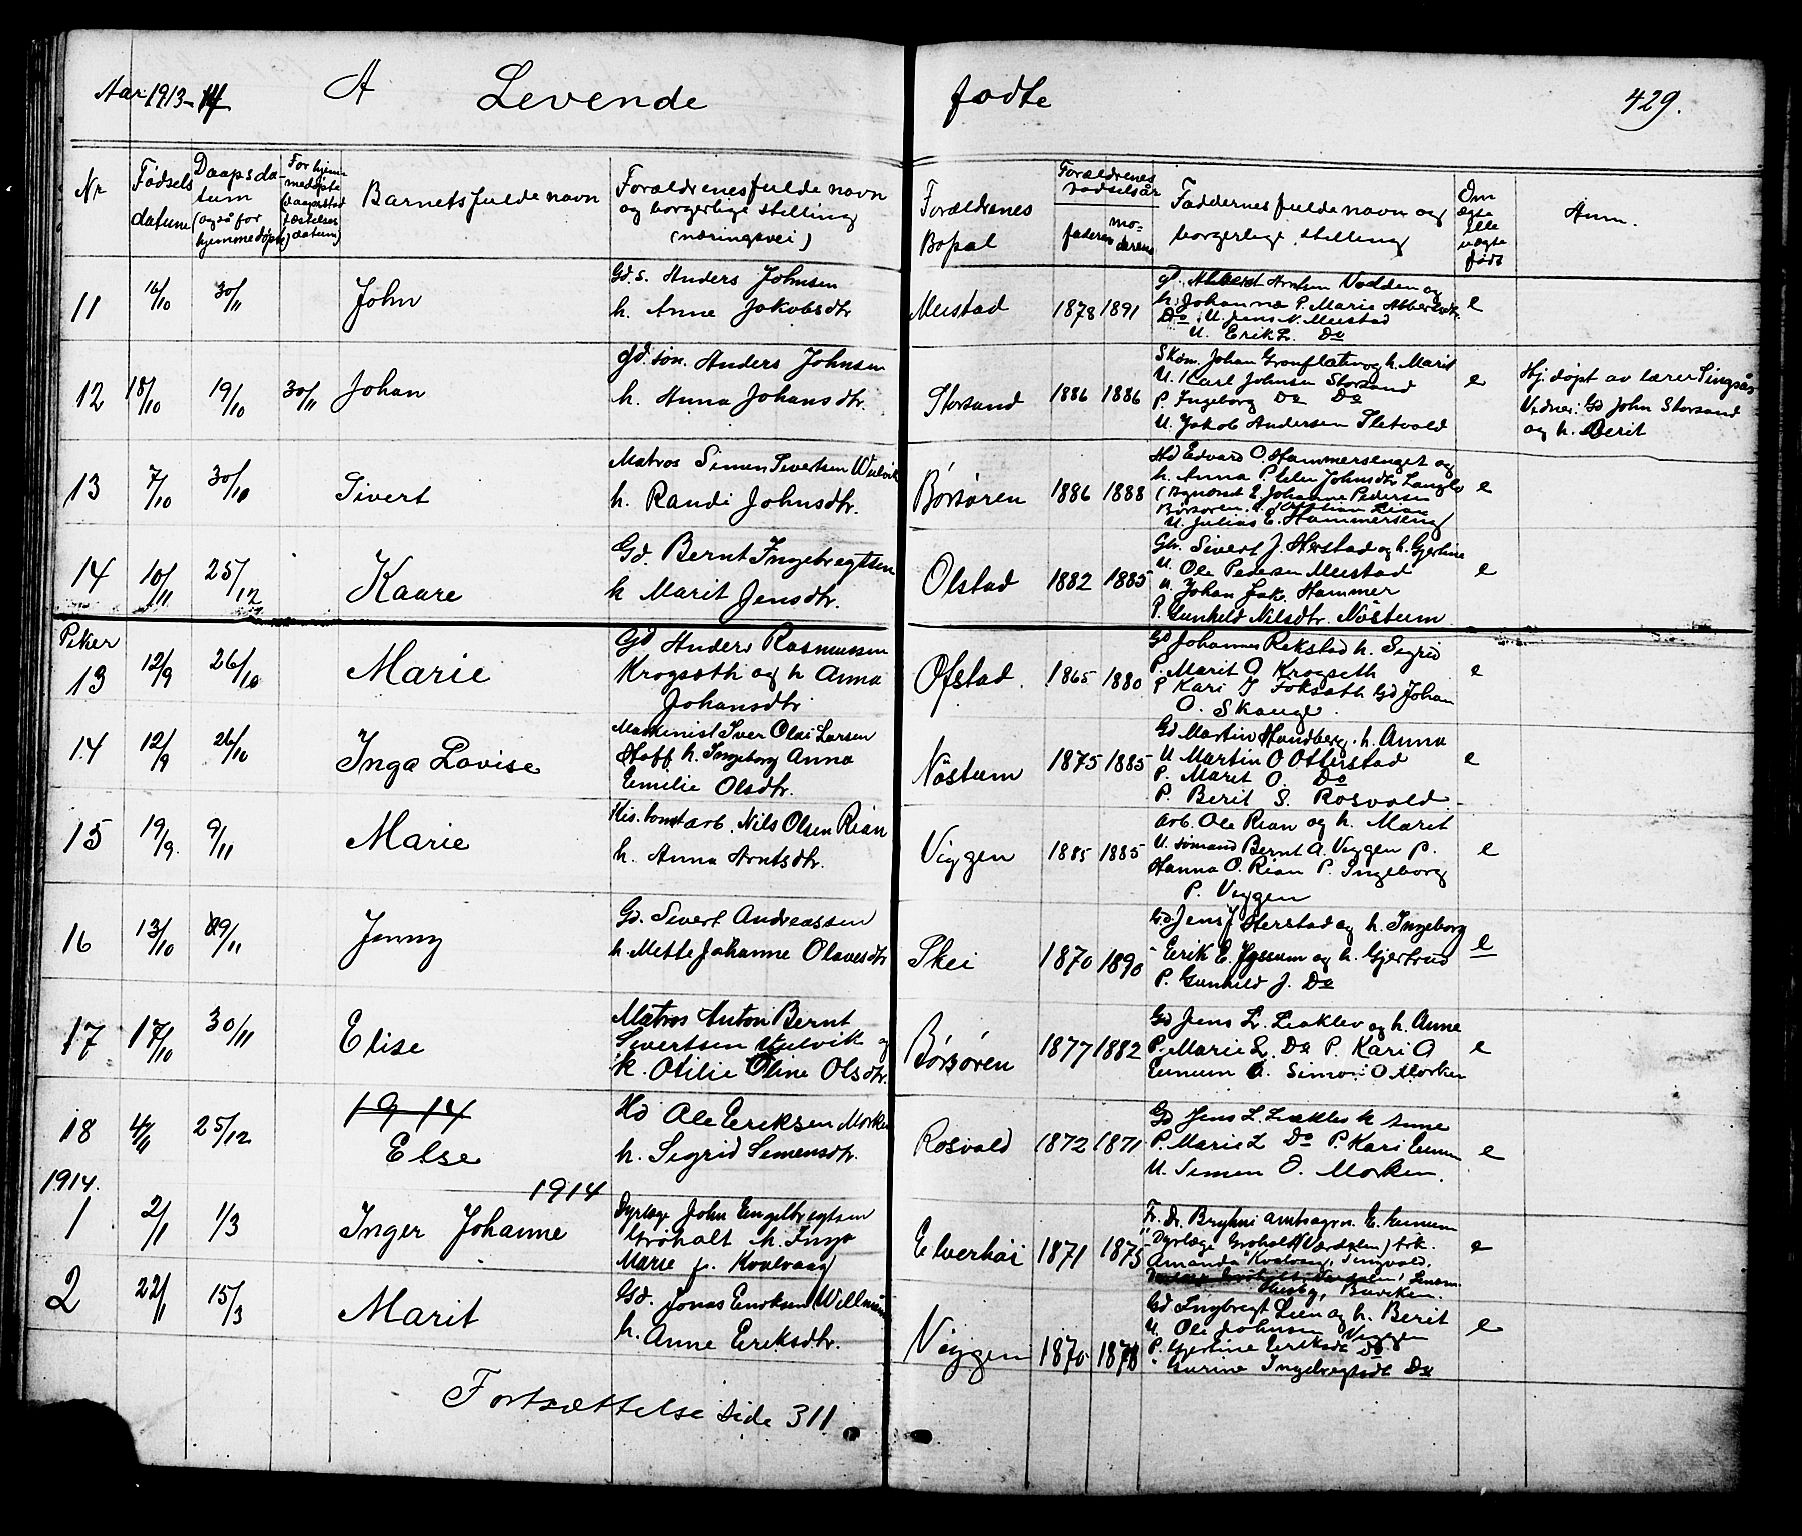 Aar 1913-14 A Levende fødte 429.
Nr
Fødsels datum
Daapsdatum (også for hjemmedøpte)
For hjemmedøpte
Barnets fulde navn
Forældrenes fulde navn
og borgerlige stilling
(næringsvei)
Forældrenes
Bopæl
Forældrenes
fødselsår
faderens
moderens
Faddernes fulde navn og
borgerlige stilling
Om
ægte
elle
uægte
født
Anm.
11 16/10 30/11 John
Gd. s. Anders Johnsen
h. Anne Jakobsdtr
Meistad 1878 1891
h. Johanna P. Marie
Do. U. Jens N. Meistad
U. Erik L. Do
e
12 18/10 19/10 30/11 Johan
Gd. søn. Anders Johnsen
h. Anna Johansdtr.
Storsand 1886 1886
Skom. Johan Gronflaten og h. Marit
U. Karl Johnsen Storsand
P. Ingeborg Do Do
U. Jakob Andersen Sletvold
e
Hj. døpt av lærer Singsås
Vidner: Gd John Storsand
og h. Berit
13 7/10 30/10 Sivert
Matros Simon Sivertsen
h. Randi Johnsdtr.
Børsøren 1886 1888
Hd Edvard O Hammersenget og
h. Anna P. Johnsdtr
E. Johanne Pedersen
Børsøren
U. Julius E. Hammerseng
e
14 10/11 25/12 Kaare
Gd. Bernt Ingebregtsen
h Marit Jensdtr.
Olstad 1882 1885
Gbr. Sivert J. Herstad og h. Gjertine
U. Ole Pedersen Meistad
U. Johan Jak. Hammer
P. Gunhild Nilsdtr. Nøstum
e
Piker
13 12/9 26/10 Marie
Gd Anders Rasmussen
Krogseth og h Anna
Johansdtr
Ofstad. 1865 1880
Gd Johannes Rekstad h. Sigrid
P. Marit O Krogseth
P Kari J Foksæth Gd Johan
O. Skauge.
e
14 12/9 26/10 Inga Lovise
Maskinist Iver Olai Larsen
Hoff h. Ingeborg Anna
Emilie Olsdtr.
Nøstum 1875 1885
Gd Martin Handberg. h. Anna
U Martin O Otterstad
P. Marit O. Do
P. Berit S. Rosvold
e
15 19/9. 9/11 Marie
arb. Nils Olsen Rian
h. Anna Arntsdtr.
Viggen 1885 1885
Arb. Ole Rian og h. Marit
U. Sømand Bernt A. Viggen P.
Hanna O. Rian P. Ingeborg
P. Viggen
e
16 13/10 9/11 Jenny
Gd. Sivert Andreassen
h. Mette Johanne Olavesdtr
Skei 1870 1890
Gd. Jens J Herstad og h. Ingeborg
Erik E. Jyssum og h. Gjertrud
P. Gunhild J. Do
e
17 17/10 30/11 Elise
Matros Anton Bernt
Sivertsen Vulvik og
h. Otilie Oline Olsdtr.
Børsøren 1877 1882
Gd Jens L. Leoklev og h. Anne
P. Marie L. Do P. Kari O
Eunum U. Simon O Morken
e
18 4/11 25/12
1914
Else
Hd Ole Eriksen Morken
h. Sigrid Simensdtr.
Rosvold 1872 1871
Gd Jens L. Leoklev h Anne
P. Marie L Do P. Kari Eunum
U. Simen O. Morken.
e
1914. 1914
1 2/1 1/3 Inger Johanne
Dyrlæge John Engelbregtsen
Grøholt h. Inga
Marie f. Kvalvaag
Elverhøi 1871 1875
Fr. Dr. Bryhni amtsagron. E. Eunum
Dyrlæge Grøholt (Værdalen) frk.
Amanda Kvalvaag, Tingvold,
Husby, Buviken.
e
2 22/1 15/3 Marit
Gd. Jonas Enoksen
h. Anne Eriksdtr.
Viggen 1870 1878
Gd Ingbregt Lien og h. Berit
U. Ole Johnsen Viggen
P. Gjertine Eriksdt Do
" Gurine Ingebregtsdt Do
e
Fortsættelse side 311